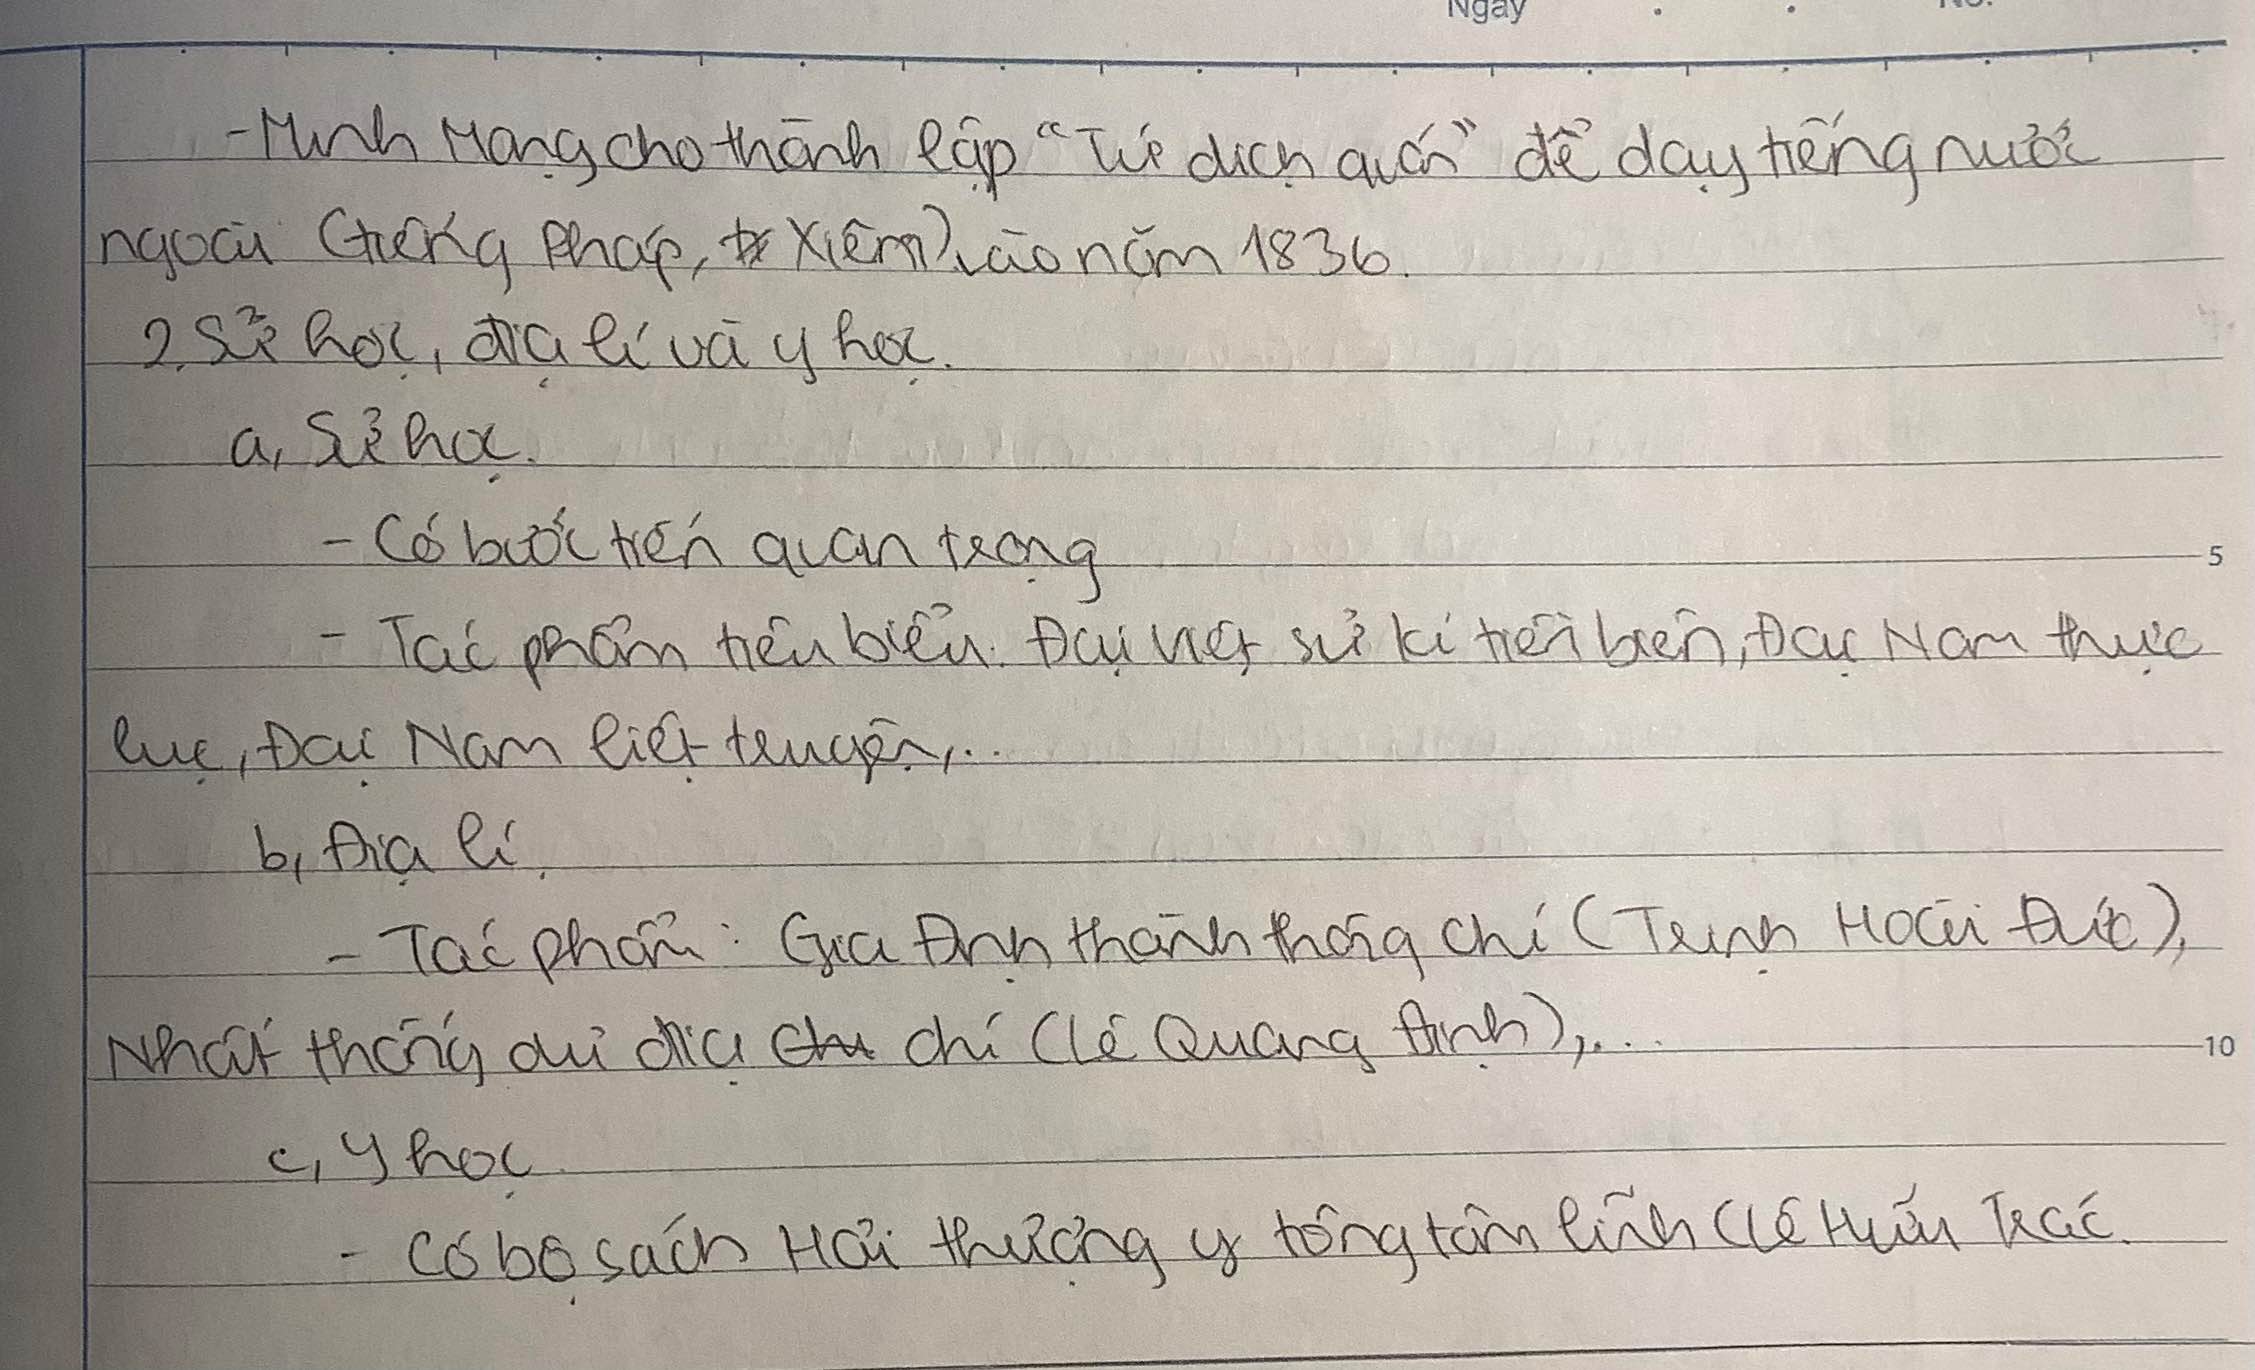 Ngày
- Minh Mạng cho thành lập “Tứ dịch quán” để dạy tiếng nước
ngoài (tiếng Pháp, Xiêm) vào năm 1836.
2. Sử học, địa lí và y học.
a, Sử học.
- Có bước tiến quan trọng
5
- Tác phẩm tiêu biểu: Đại Việt sử kí tiền biên, Đại Nam thực
lục, Đại Nam liệt truyện,...
b, Địa lí.
- Tác phẩm: Gia Định thành thông chí (Trịnh Hoài Đức),
Nhất thống dư địa chí (Lê Quang Định),...
10
c, Y học.
- Có bộ sách Hải thượng y tông tâm lĩnh (Lê Hữu Trác.